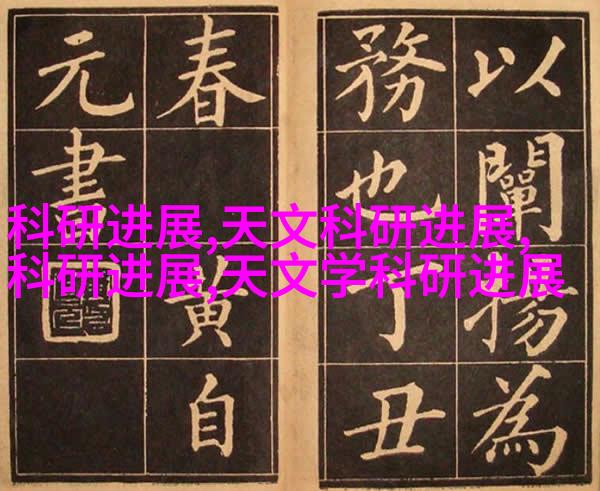 以闡揚為
務也丁丑
春黄自
元書
科研进展,天文科研进展,
科研进展,天文学科研进展